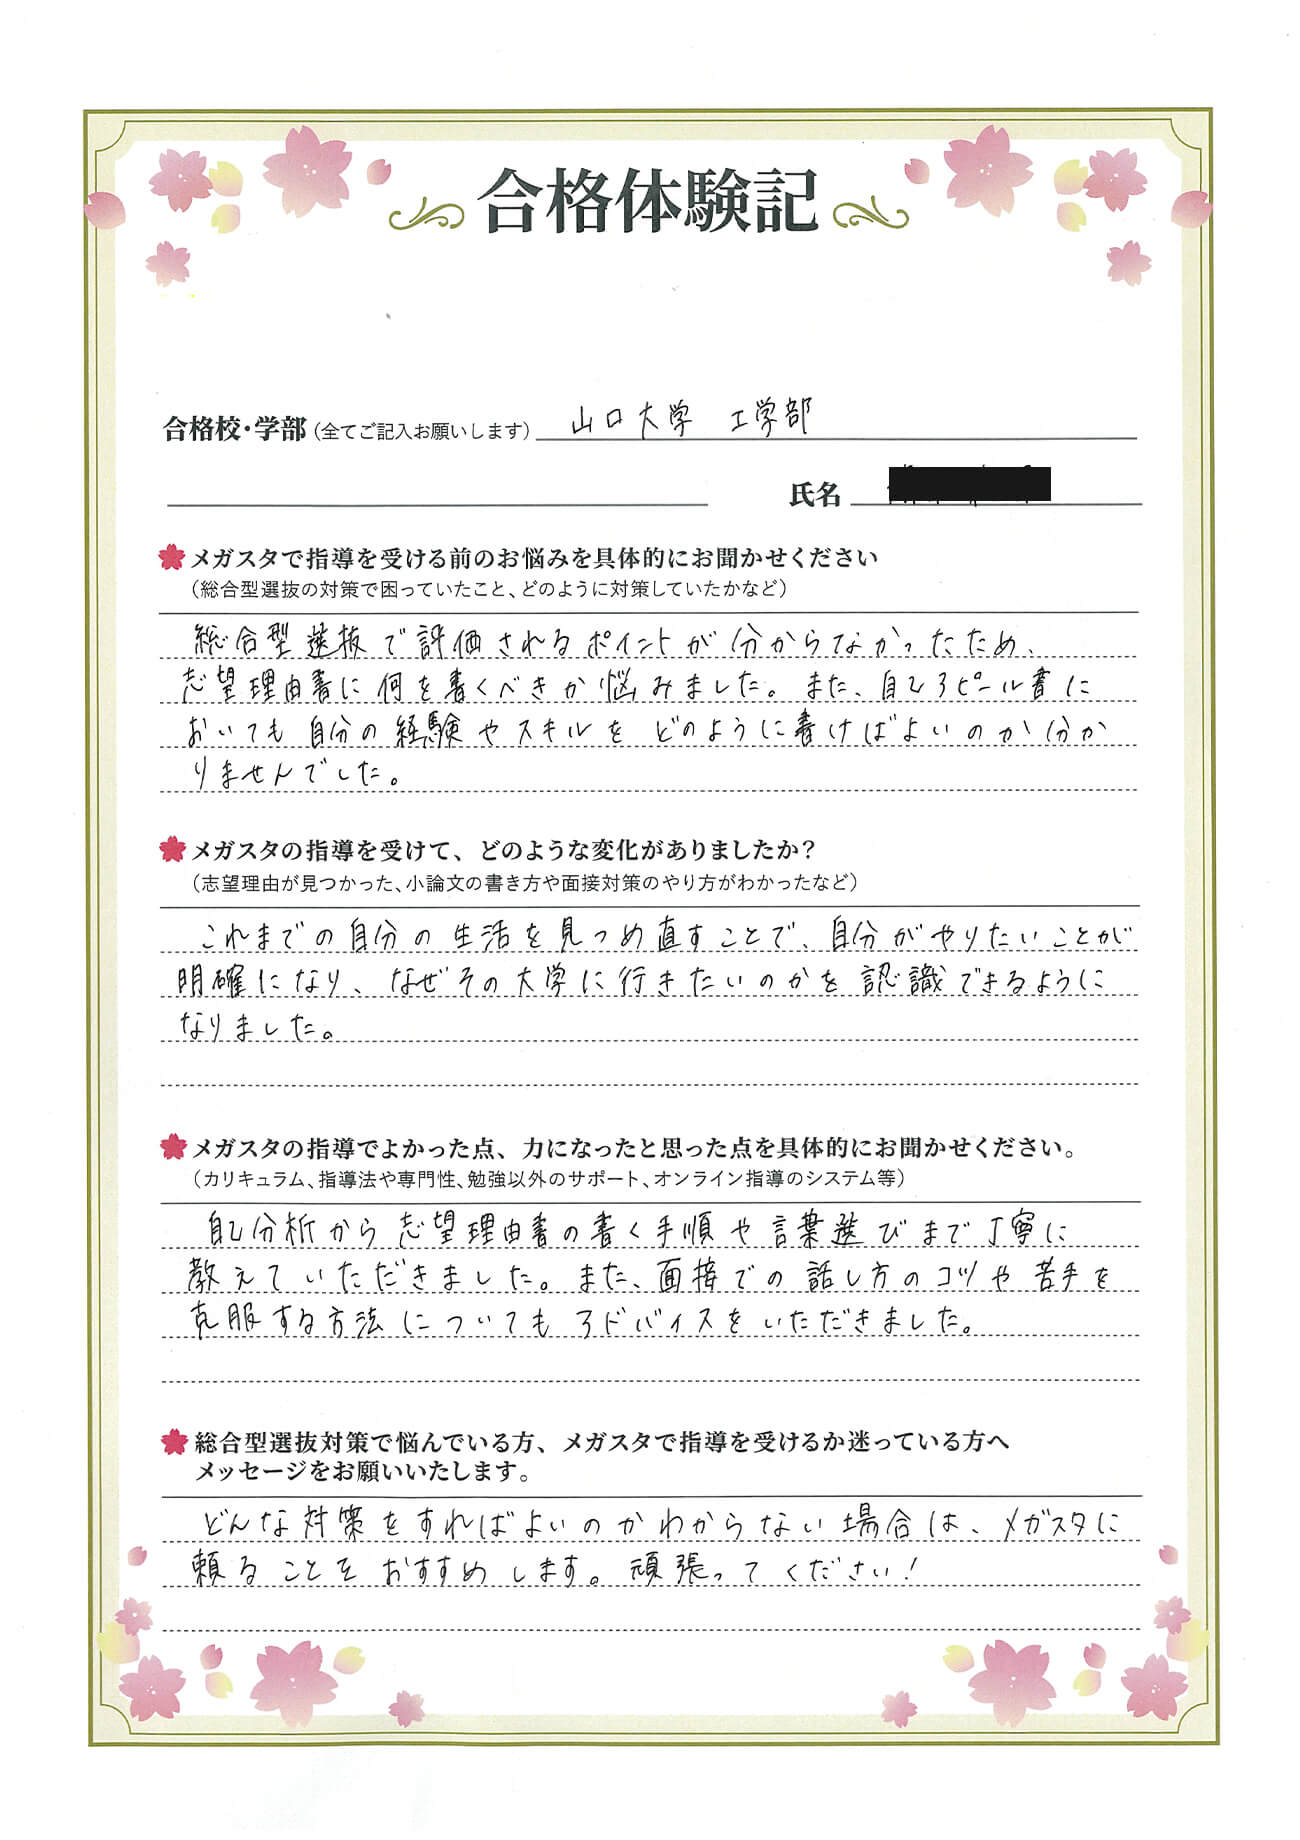 合格体験記
合格校・学部（全てご記入お願いします） 山口大学 工学部
氏名
メガスタで指導を受ける前のお悩みを具体的にお聞かせください
（総合型選抜の対策で困っていたこと、どのように対策していたかなど）
総合型選抜で評価されるポイントが分からなかったため、
志望理由書に何を書くべきか悩みました。また、自己アピール書に
おいても自分の経験やスキルをどのように書けばよいのか分か
りませんでした。
メガスタの指導を受けて、どのような変化がありましたか？
（志望理由が見つかった、小論文の書き方や面接対策のやり方がわかったなど）
これまでの自分の生活を見つめ直すことで、自分がやりたいことが
明確になり、なぜその大学に行きたいのかを認識できるように
なりました。
メガスタの指導でよかった点、力になったと思った点を具体的にお聞かせください。
（カリキュラム、指導法や専門性、勉強以外のサポート、オンライン指導のシステム等）
自己分析から志望理由書の書く手順や言葉選びまで丁寧に
教えていただきました。また、面接での話し方のコツや苦手を
克服する方法についてもアドバイスをいただきました。
総合型選抜対策で悩んでいる方、メガスタで指導を受けるか迷っている方へ
メッセージをお願いいたします。
どんな対策をすればよいのかわからない場合は、メガスタに
頼ることをおすすめします。頑張ってください！